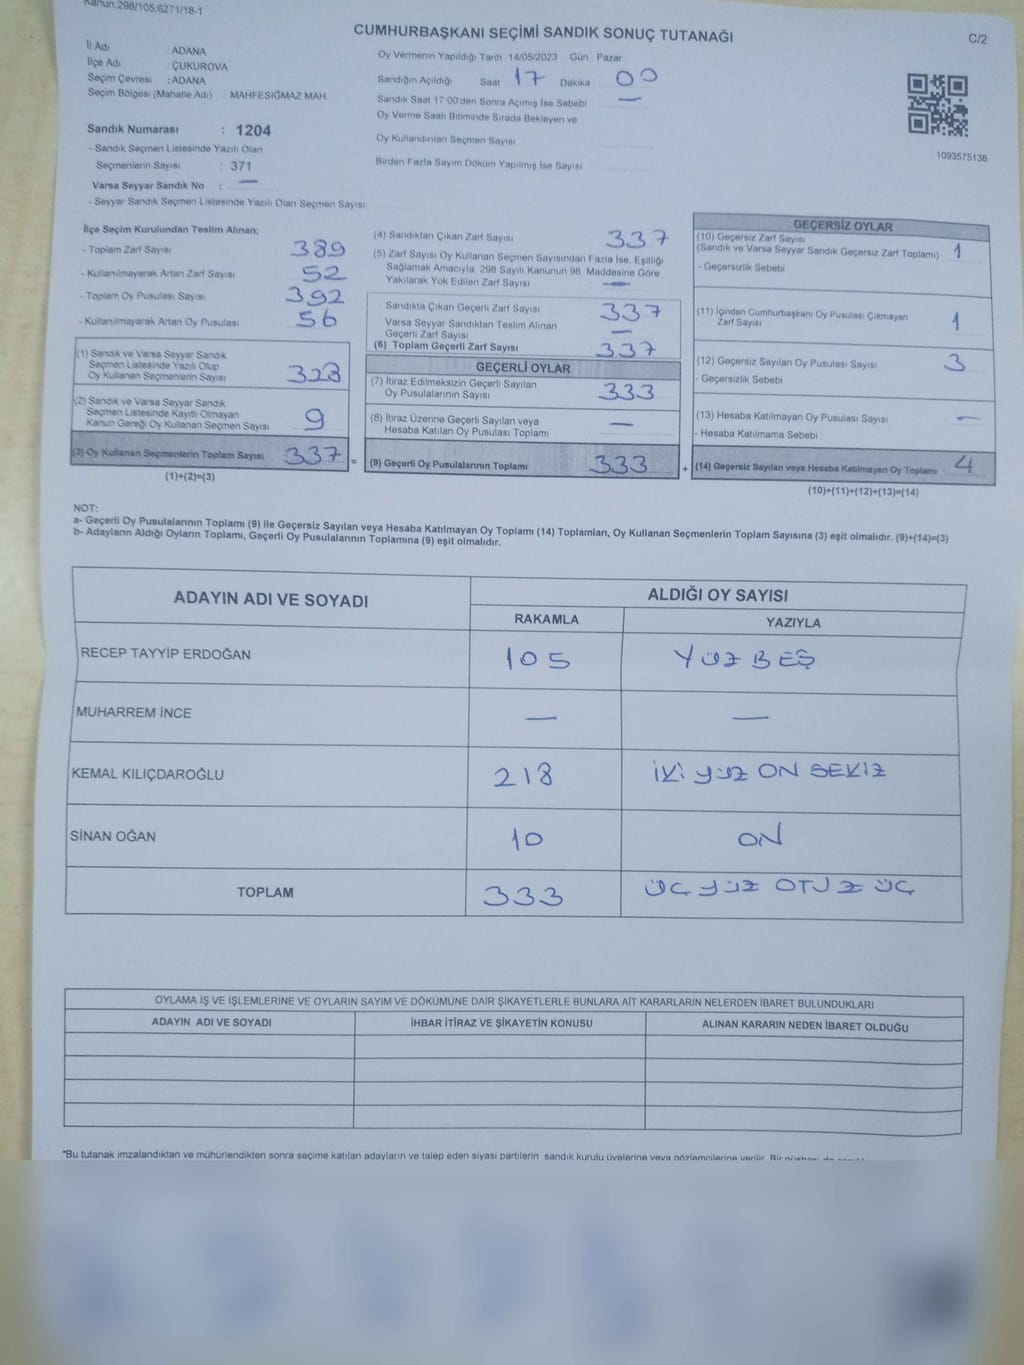 Kanun.298/105,6271/18-1
CUMHURBAŞKANI SEÇİMİ SANDIK SONUÇ TUTANAĞI
C/2
İl Adı : ADANA
İlçe Adı : ÇUKUROVA
Seçim Çevresi : ADANA
Seçim Bölgesi (Mahalle Adı) : MAHFESIĞMAZ MAH.
Sandık Numarası : 1204
- Sandık Seçmen Listesinde Yazılı Olan
Seçmenlerin Sayısı : 371
Varsa Seyyar Sandık No : —
- Seyyar Sandık Seçmen Listesinde Yazılı Olan Seçmen Sayısı
Oy Vermenin Yapıldığı Tarih 14/05/2023 Gün Pazar
Sandığın Açıldığı Saat 17 Dakika 00
Sandık Saat 17:00'den Sonra Açımış İse Sebebi —
Oy Verme Saati Bitiminde Sırada Bekleyen ve
Oy Kullandırılan Seçmen Sayısı
Birden Fazla Sayım Döküm Yapılmış İse Sayısı
1093575138
İlçe Seçim Kurulundan Teslim Alınan;
- Toplam Zarf Sayısı 389
- Kullanılmayarak Artan Zarf Sayısı 52
- Toplam Oy Pusulası Sayısı 392
- Kullanılmayarak Artan Oy Pusulası 56
(1) Sandık ve Varsa Seyyar Sandık
Seçmen Listesinde Yazılı Olup
Oy Kullanan Seçmenlerin Sayısı 328
(2) Sandık ve Varsa Seyyar Sandık
Seçmen Listesinde Kayıtlı Olmayan
Kanun Gereği Oy Kullanan Seçmen Sayısı 9
(3) Oy Kullanan Seçmenlerin Toplam Sayısı 337 =
(1)+(2)=(3)
(4) Sandıktan Çıkan Zarf Sayısı 337
(5) Zarf Sayısı Oy Kullanan Seçmen Sayısından Fazla İse, Eşitliği
Sağlamak Amacıyla, 298 Sayılı Kanunun 98. Maddesine Göre
Yakılarak Yok Edilen Zarf Sayısı —
Sandıkta Çıkan Geçerli Zarf Sayısı 337
Varsa Seyyar Sandıktan Teslim Alınan
Geçerli Zarf Sayısı —
(6) Toplam Geçerli Zarf Sayısı 337
GEÇERLİ OYLAR
(7) İtiraz Edilmeksizin Geçerli Sayılan
Oy Pusulalarının Sayısı 333
(8) İtiraz Üzerine Geçerli Sayılan veya
Hesaba Katılan Oy Pusulası Toplamı —
(9) Geçerli Oy Pusulalarının Toplamı 333 +
GEÇERSİZ OYLAR
(10) Geçersiz Zarf Sayısı
(Sandık ve Varsa Seyyar Sandık Geçersiz Zarf Toplamı) 1
- Geçersizlik Sebebi
(11) İçinden Cumhurbaşkanı Oy Pusulası Çıkmayan
Zarf Sayısı 1
(12) Geçersiz Sayılan Oy Pusulası Sayısı 3
- Geçersizlik Sebebi
(13) Hesaba Katılmayan Oy Pusulası Sayısı —
- Hesaba Katılmama Sebebi
(14) Geçersiz Sayılan veya Hesaba Katılmayan Oy Toplamı 4
(10)+(11)+(12)+(13)=(14)
NOT:
a- Geçerli Oy Pusulalarının Toplamı (9) ile Geçersiz Sayılan veya Hesaba Katılmayan Oy Toplamı (14) Toplamları, Oy Kullanan Seçmenlerin Toplam Sayısına (3) eşit olmalıdır. (9)+(14)=(3)
b- Adayların Aldığı Oyların Toplamı, Geçerli Oy Pusulalarının Toplamına (9) eşit olmalıdır.
ADAYIN ADI VE SOYADI ALDIĞI OY SAYISI
RAKAMLA YAZIYLA
RECEP TAYYİP ERDOĞAN 105 YÜZ BEŞ
MUHARREM İNCE — —
KEMAL KILIÇDAROĞLU 218 İKİ YÜZ ON SEKİZ
SİNAN OĞAN 10 ON
TOPLAM 333 ÜÇ YÜZ OTUZ ÜÇ
OYLAMA İŞ VE İŞLEMLERİNE VE OYLARIN SAYIM VE DÖKÜMÜNE DAİR ŞİKAYETLERLE BUNLARA AİT KARARLARIN NELERDEN İBARET BULUNDUKLARI
ADAYIN ADI VE SOYADI İHBAR İTİRAZ VE ŞİKAYETİN KONUSU ALINAN KARARIN NEDEN İBARET OLDUĞU
*Bu tutanak imzalandıktan ve mühürlendikten sonra seçime katılan adayların ve talep eden siyasi partilerin sandık kurulu üyelerine veya gözlemcilerine verilir. Bir